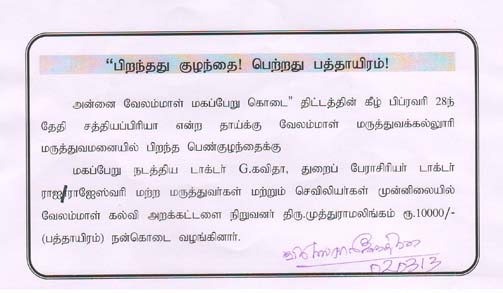 “பிறந்தது குழந்தை! பெற்றது பத்தாயிரம்!
அன்னை வேலம்மாள் மகப்பேறு கொடை” திட்டத்தின் கீழ் பிப்ரவரி 28ந்
தேதி சத்தியப்பிரியா என்ற தாய்க்கு வேலம்மாள் மருத்துவக்கல்லூரி
மருத்துவமனையில் பிறந்த பெண்குழந்தைக்கு
மகப்பேறு நடத்திய டாக்டர் G.கவிதா, துறைப் பேராசிரியர் டாக்டர்
ராஜராஜேஸ்வரி மற்ற மருத்துவர்கள் மற்றும் செவிலியர்கள் முன்னிலையில்
வேலம்மாள் கல்வி அறக்கட்டளை நிறுவனர் திரு.முத்துராமலிங்கம் ரூ.10000/-
(பத்தாயிரம்) நன்கொடை வழங்கினார்.
020313